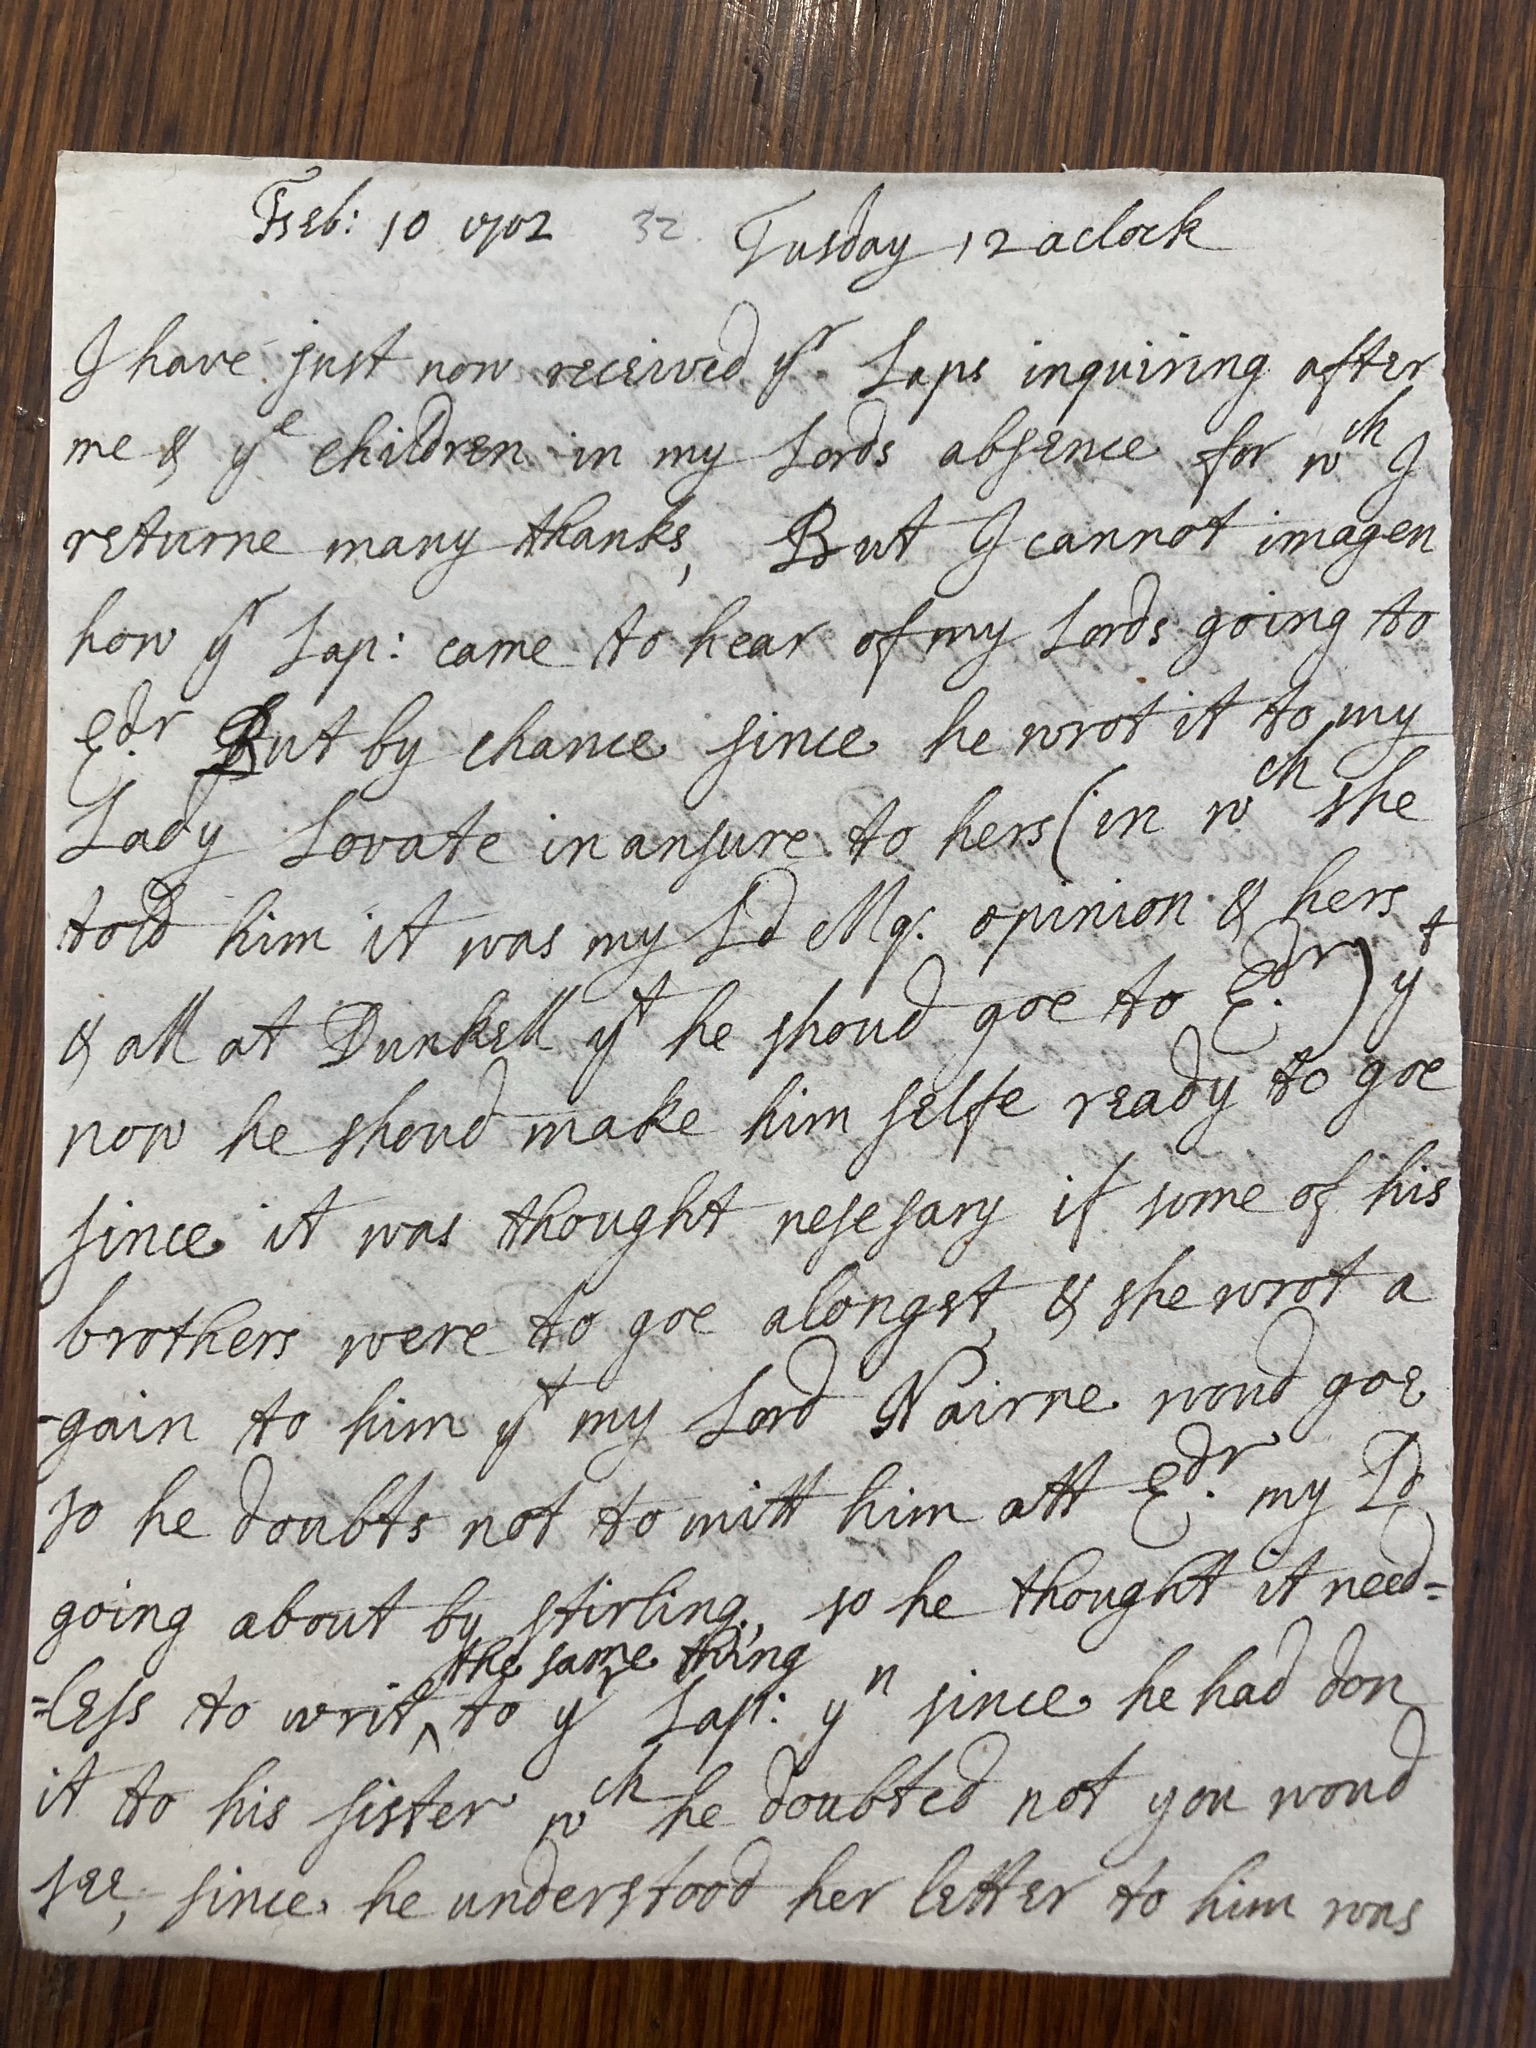 Feb: 10 1702 32. Tusday 12 aclock
I have just now received yr Laps inquiring after
me & ye children in my Lords absence for wch I
returne many thanks, But I cannot imagen
how yr Lap: came to hear of my Lords going to
Edr. But by chance since he wrot it to my
Lady Lovate in ansure to hers (in wch she
told him it was my Ld Mq. opinion & hers
& all at Dunkell yt he shoud goe to Edr.) yt
now he shoud make him selfe ready to goe
since it was thought nesesary if some of his
brothers were to goe alongst, & she wrot a
-gain to him yt my Lord Nairne woud goe
so he doubts not to mitt him att Edr. my Ld
going about by stirling, so he thought it need=
=less to writ ^ the same thing to yr Lap: yn since he had don
it to his sister wch he doubted not you woud
see, since he understood her letter to him was